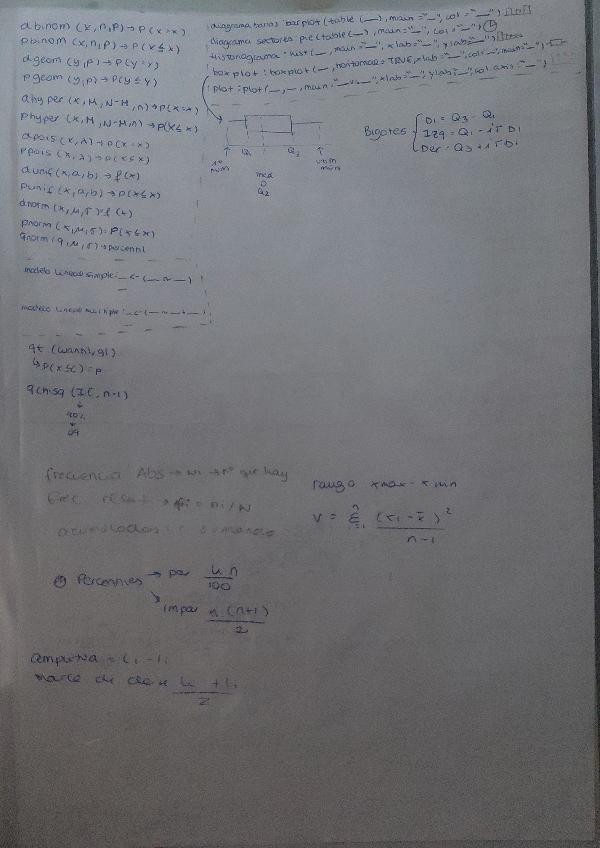 dbinom (x,n,p) → P(X=x)
pbinom (x,n,p) → P(X≤x)
dgeom (y,p) → P(Y=y)
pgeom (y,p) → P(Y≤y)
dhyper (x, M, N-M, n) → P(X=x)
phyper (x, M, N-M, n) → P(X≤x)
dpois (x, λ) → P(X=x)
ppois (x, λ) → P(X≤x)
dunif (x, a, b) → f(x)
punif (x, a, b) → P(X≤x)
dnorm (x, μ, σ) = f(x)
pnorm (x, μ, σ) = P(X≤x)
qnorm (q, μ, σ) → percentil
modelo lineal simple: _ <- ( _ ~ _ )
modelo lineal multiple: _ <- ( _ ~ _ + _ )
qt (cuantil, gl)
↳ P(X≤c) = p
qchisq (IC, n-1)
↓
90%
↓
diagrama barras: barplot (table (_), main="_", col="_")
diagrama sectores pie (table (_), main="_", col="_")
Histograma: hist (_, main="_", xlab="_", ylab="_")
boxplot: boxplot (_, horizontal=TRUE, xlab="_", col="_", main="_")
plot: plot (_, _, main="_", xlab="_", ylab="_", col.axis="_")
Q₁ Q₃
med
Q₂
Bigotes
DI = Q₃ - Q₁
Izq = Q₁ - 1'5 DI
Der = Q₃ + 1'5 DI
frecuencia Abs → ni → nº que hay
frec relat → fi = ni/N
acumuladas: sumando
rango xmax - xmin
V = Σ (xi - x̄)² / n-1
Percentiles → par k·n / 100
↘ impar (n+1) / 2
amplitud = Li - li
marca de clase Li + li / 2